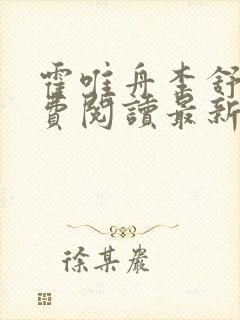 霍唯舟李舒
費閱讀最新
徐某嚴